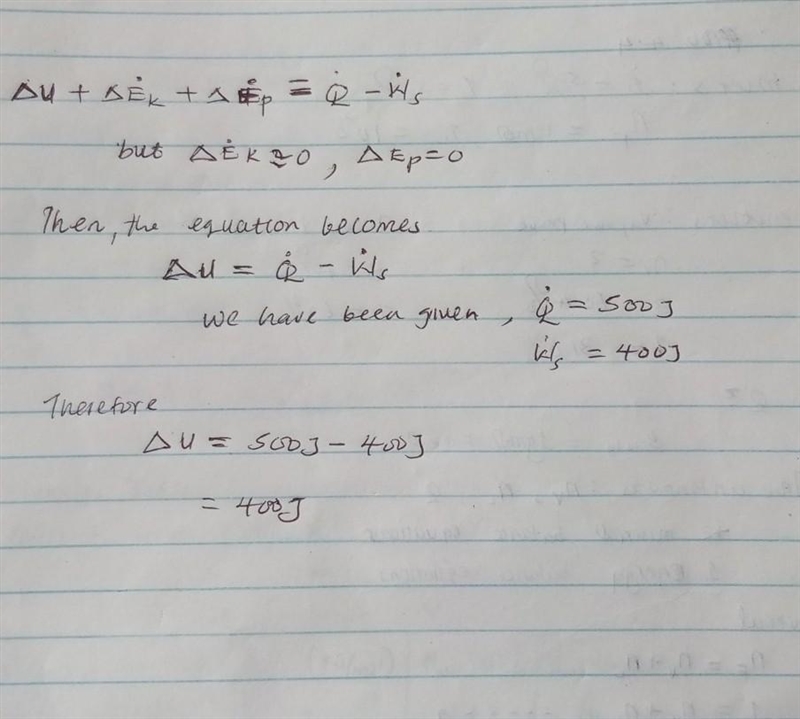 ΔU + ΔĖk + ΔĖp = Q̇ - Ẇs
but ΔĖk ≈ 0, ΔEp = 0
Then, the equation becomes
ΔU = Q̇ - Ẇs
we have been given, Q̇ = 500J
Ẇs = 400J
Therefore
ΔU = 500J - 400J
= 400J